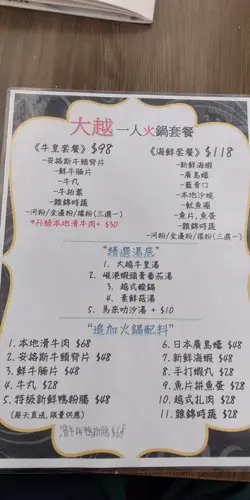 大越 一人火鍋套餐
《牛皇套餐》$98
-安格斯牛頸脊片
-鮮牛𦟌片
-牛丸
-牛柏葉
-雜錦時蔬
-河粉/金邊粉/檬粉(三選一)
*升級本地滑牛肉+ $30
《海鮮套餐》$118
-新鮮海蝦
-廣島蠔
-藍青口
-本地沙蜆
-魷魚鬚
-魚片,魚蛋
-雜錦時蔬
-河粉/金邊粉/檬粉(三選一)
"精選湯底"
1. 大越牛皇湯
2. 峴港蝦頭膏番茄湯
3. 越式鹹湯
4. 素鮮菇湯
5. 馬來叻沙湯 + $10
"追加火鍋配料"
1. 本地滑牛肉 $68
2. 安格斯牛頸脊片 $48
3. 鮮牛𦟌片 $48
4. 牛丸 $28
5. 特級新鮮鴨粉腸 $48
(每天直送,限量供應)
6. 日本廣島蠔 $48
7. 新鮮海蝦 $48
8. 手打蝦丸 $28
9. 魚片拼魚蛋 $28
10. 越式扎肉 $28
11. 雜錦時蔬 $28
鴨粉腸 $68